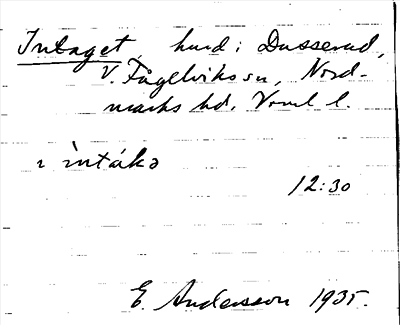 Intaget, hmd i Dusserud,
V. Fågelviks sn, Nord-
marks hd. Vrml l.
i ìntákə
12:30
E. Andersson 1935.